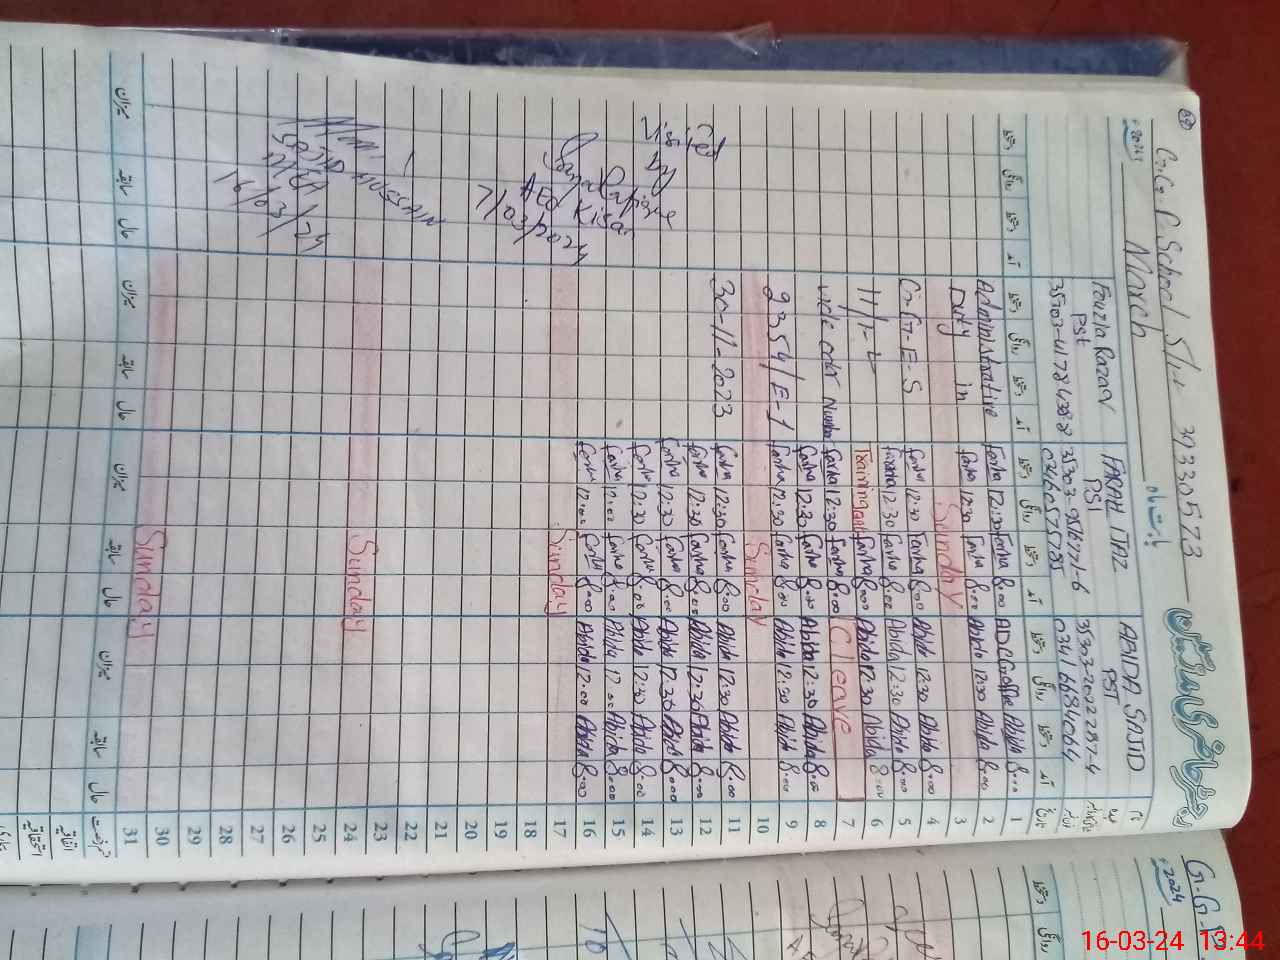 G.G.P. School 5/1.L 37330573
رجسٹر حاضری مدرسین
بابت ماہ
March 2024ء
ABIDA SAJID
PST
35303-2022287-4
0341 6684064
FARAH IJAZ
PST
35303-9516771-6
03460575785
Fouzia Razaq
PST
Administrative
Duty in
G-G-E-S
11/1-L
vide order Number
2354/E-1
30-11-2023
1 Abida 8:00 ADCG office Farha 8:00 Farha 12:30
2 Abida 8:00 Abida 12:30 Farha 8:00 Farha 12:30
3 Sunday
4 Abida 8:00 Abida 12:30 Farha 8:00 Farha 12:30
5 Abida 8:00 Abida 12:30 Farha 8:00 Farha 12:30
6 Abida 8:00 Abida 12:30 Farha 8:00 Training
7 C leave Farha 8:00 Farha 12:30
8 Abida 8:00 Abida 12:30 Farha 8:00 Farha 12:30
9 Abida 8:00 Abida 12:30 Farha 8:00 Farha 12:30
10 Sunday
11 Abida 8:00 Abida 12:30 Farha 8:00 Farha 12:30
12 Abida 8:00 Abida 12:30 Farha 8:00 Farha 12:30
13 Abida 8:00 Abida 12:30 Farha 8:00 Farha 12:30
14 Abida 8:00 Abida 12:30 Farha 8:00 Farha 12:30
15 Abida 8:00 Abida 12:00 Farha 8:00 Farha 12:00
16 Abida 8:00 Abida 12:00 Farha 8:00 Farha 12:00
17 Sunday
18
19
20
21
22
23
24 Sunday
25
26
27
28
29
30
31 Sunday
Visited
by
AEO Kisan
7/03/2024
SAJID HUSSAIN
16/03/24
حال
سابقہ
میزان
G.G.P
2024ء
16-03-24 13:44